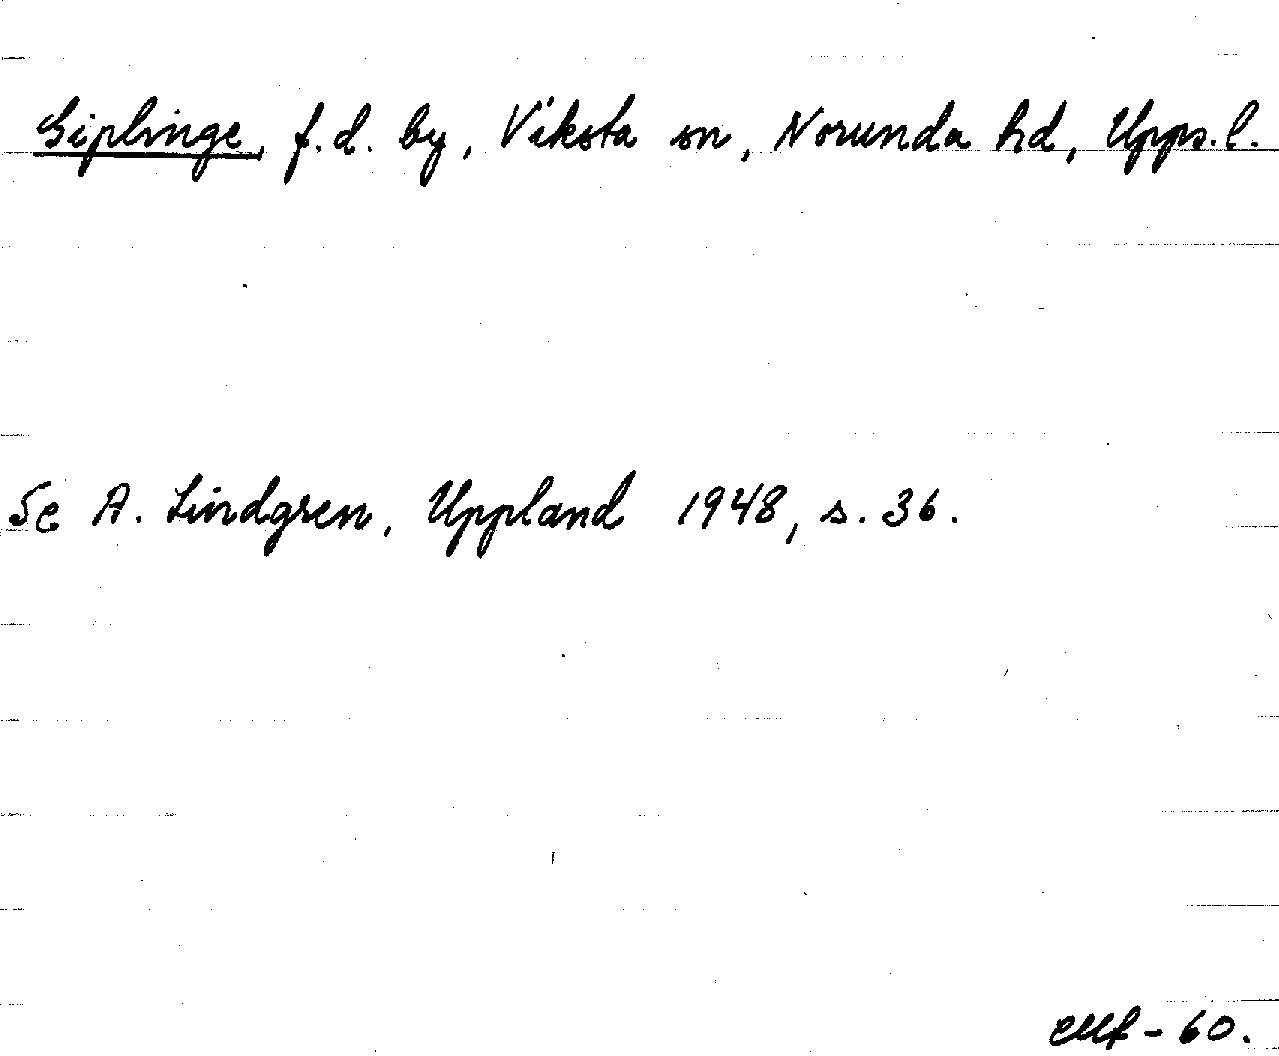 Siplinge, f.d. by, Viksta sn, Norunda hd, Upps.l.
Se A. Lindgren, Uppland 1948, s. 36.
- 60.